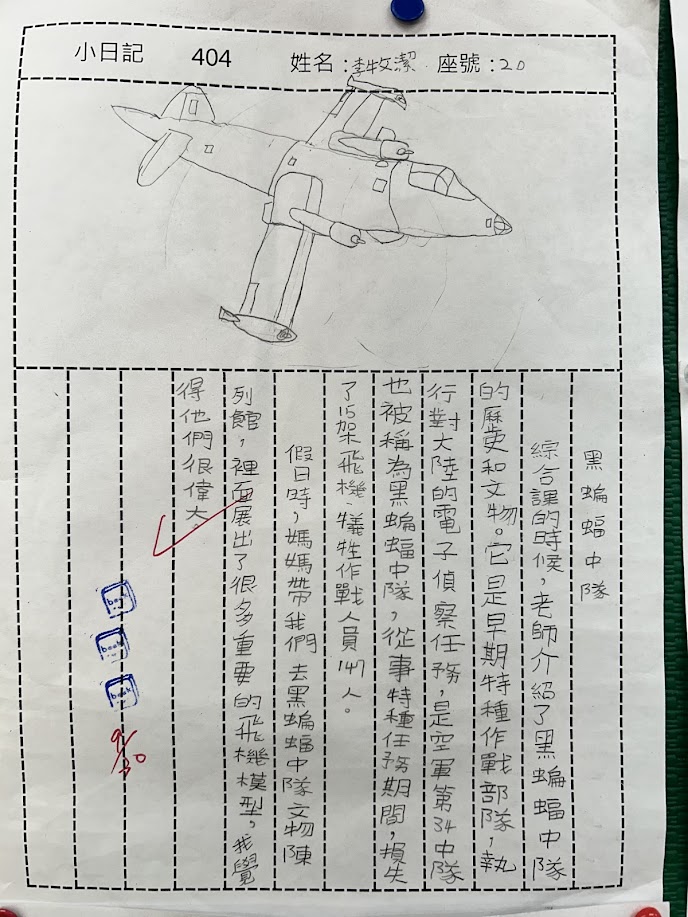 小日記 404 姓名:李牧潔 座號:20
黑蝙蝠中隊
綜合課的時候,老師介紹了黑蝙蝠中隊
的歷史和文物。它是早期特種作戰部隊,執
行對大陸的電子偵察任務,是空軍第34中隊
也被稱為黑蝙蝠中隊,從事特種任務期間,損失
了15架飛機、犠牲作戰人員147人。
假日時,媽媽帶我們去黑蝙蝠中隊文物陳
列館,裡面展出了很多重要的飛機模型,我覺
得他們很偉大。
book
book
book
9/30